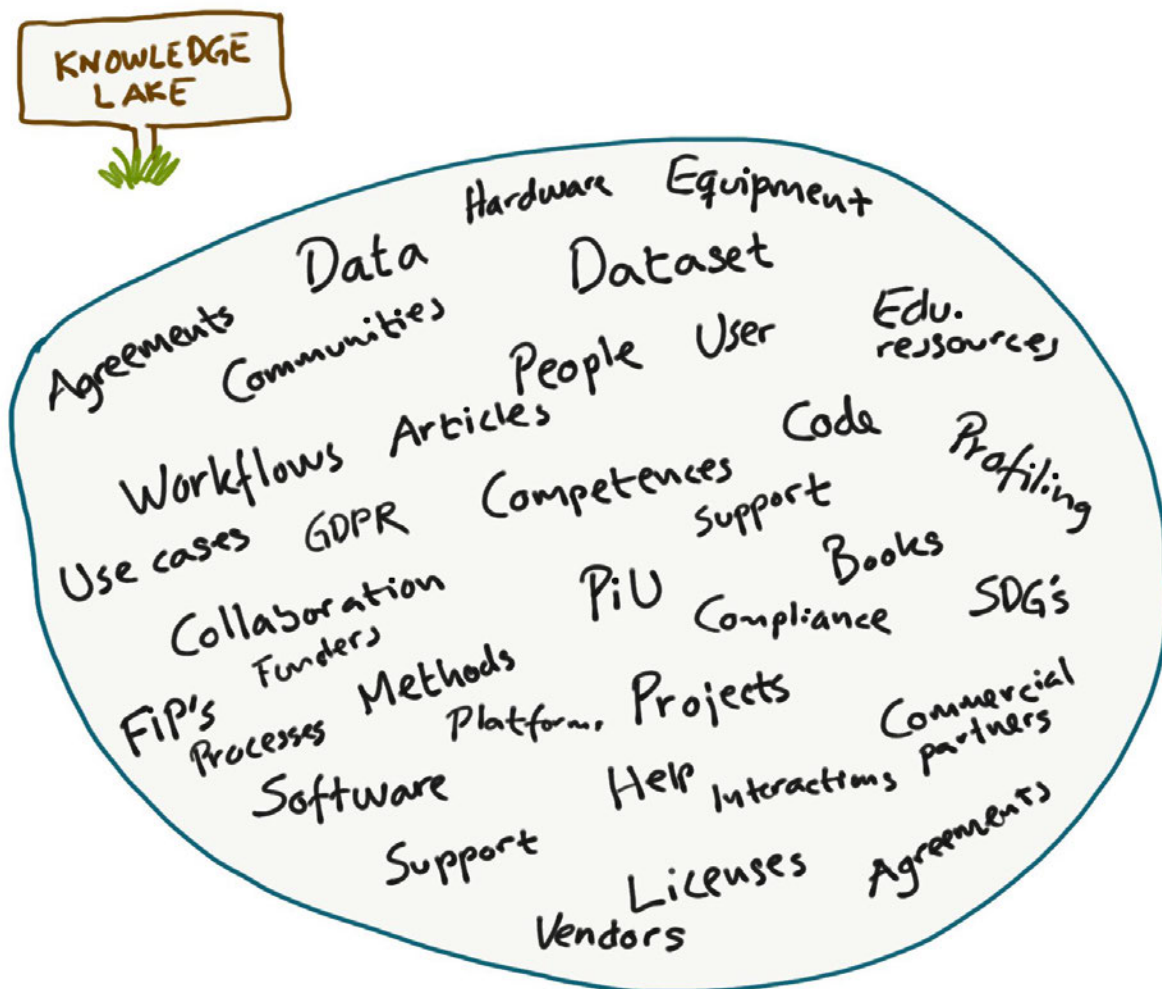 KNOWLEDGE
LAKE
Hardware
Equipment
Data
Dataset
Agreements
Communities
People
User
Edu.
ressources
Workflows
Articles
Code
Profiling
Use cases
GDPR
Competences
Support
Books
Collaboration
Funders
PiU
Compliance
SDG's
FiP's
Processes
Methods
Platforms
Projects
Commercial
partners
Software
Help
Interactions
Support
Licenses
Agreements
Vendors